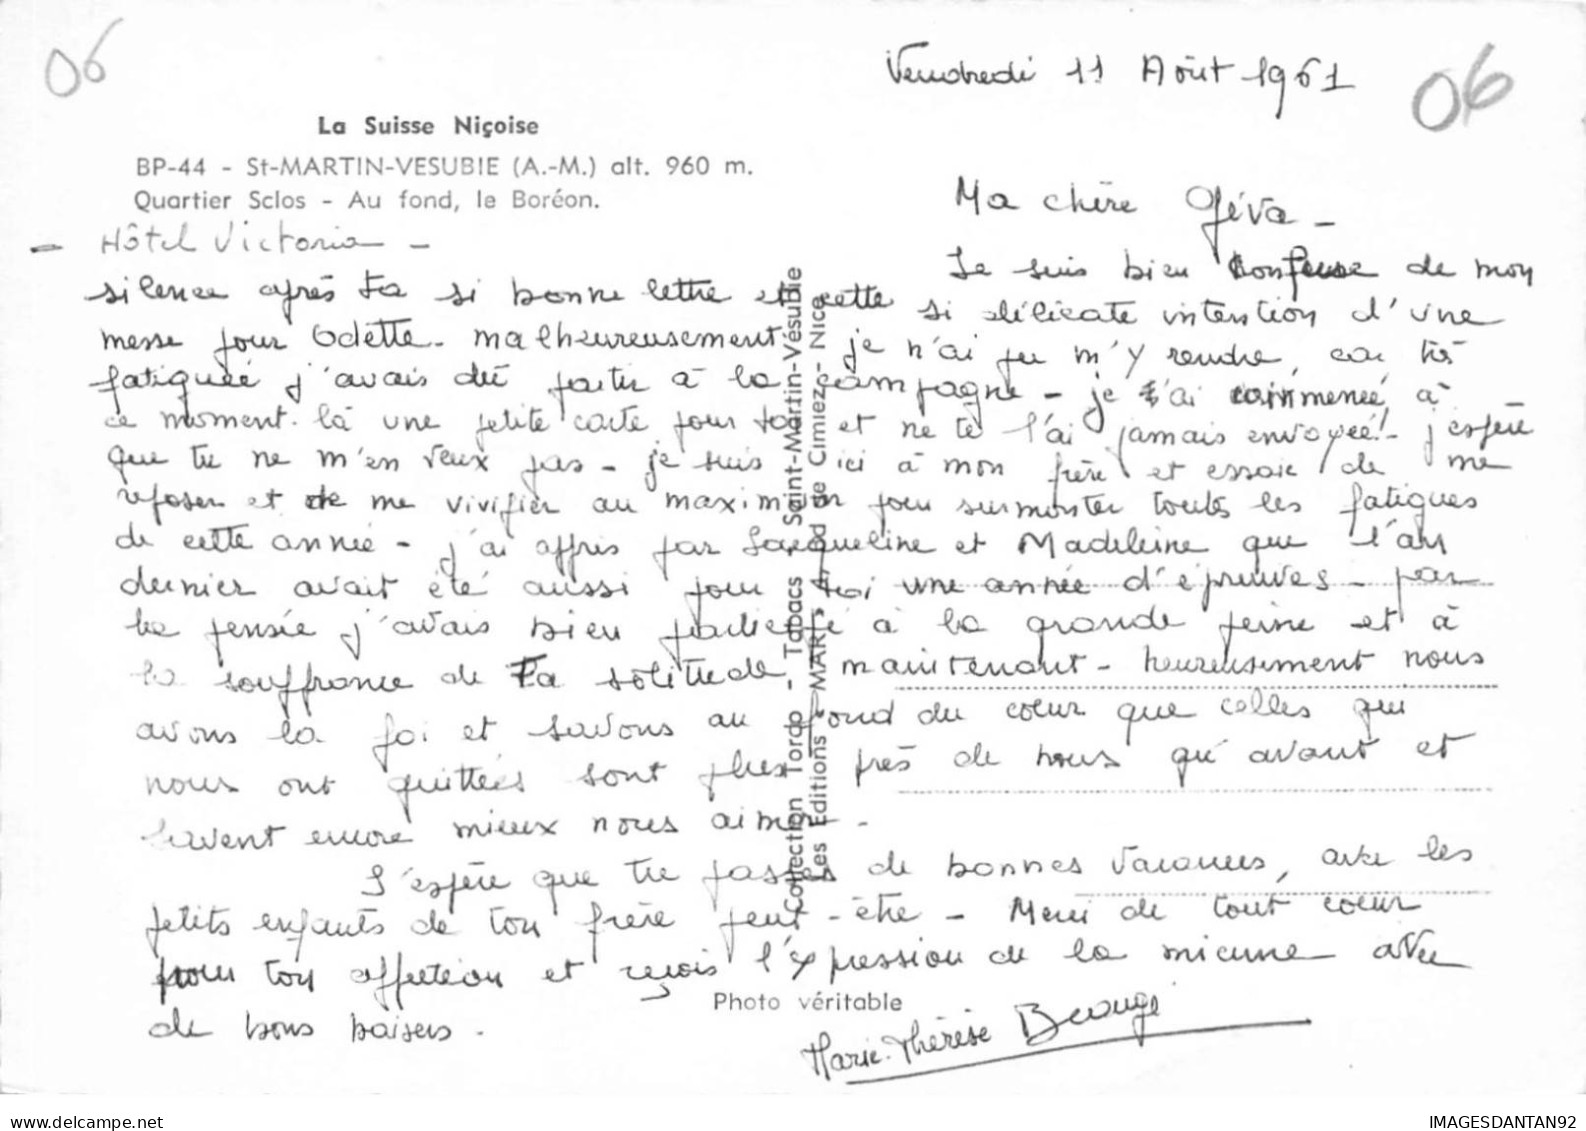 06
Vendredi 11 Août 1961
06
La Suisse Niçoise
BP-44 - St-MARTIN-VESUBIE (A.-M.) alt. 960 m.
Quartier Sclos - Au fond, le Boréon.
- Hôtel Victoria -
Ma chère Géva -
Je suis bien confuse de mon
silence après ta si bonne lettre et cette si délicate intention d'une
messe pour Odette - malheureusement je n'ai pu m'y rendre, car très
fatiguée j'avais dû partir à la campagne - je t'ai commencé à
ce moment-là une petite carte pour toi et ne te l'ai jamais envoyée! - j'espère
que tu ne m'en veux pas - je suis ici à mon frère et essaie de me
reposer et de me vivifier au maximum pour surmonter toutes les fatigues
de cette année - j'ai appris par Jacqueline et Madeleine que l'an
dernier avait été aussi pour toi une année d'épreuves - par
la pensée j'avais bien participé à la grande peine et à
la souffrance de ta solitude maintenant - heureusement nous
avons la foi et savons au fond du coeur que celles qui
nous ont quittées sont plus près de nous qu'avant et
savent encore mieux nous aimer -
J'espère que tu passes de bonnes vacances, avec les
petits enfants de ton frère peut-être - Merci de tout coeur
pour ton affection et reçois l'expression de la mienne avec
de bons baisers -
Marie-Thérèse
Photo véritable
Collection Tordo - Tabacs - Saint-Martin-Vésubie
Les Editions "MAR" de Cimiez - Nice
delcampe.net
IMAGESDANTAN92